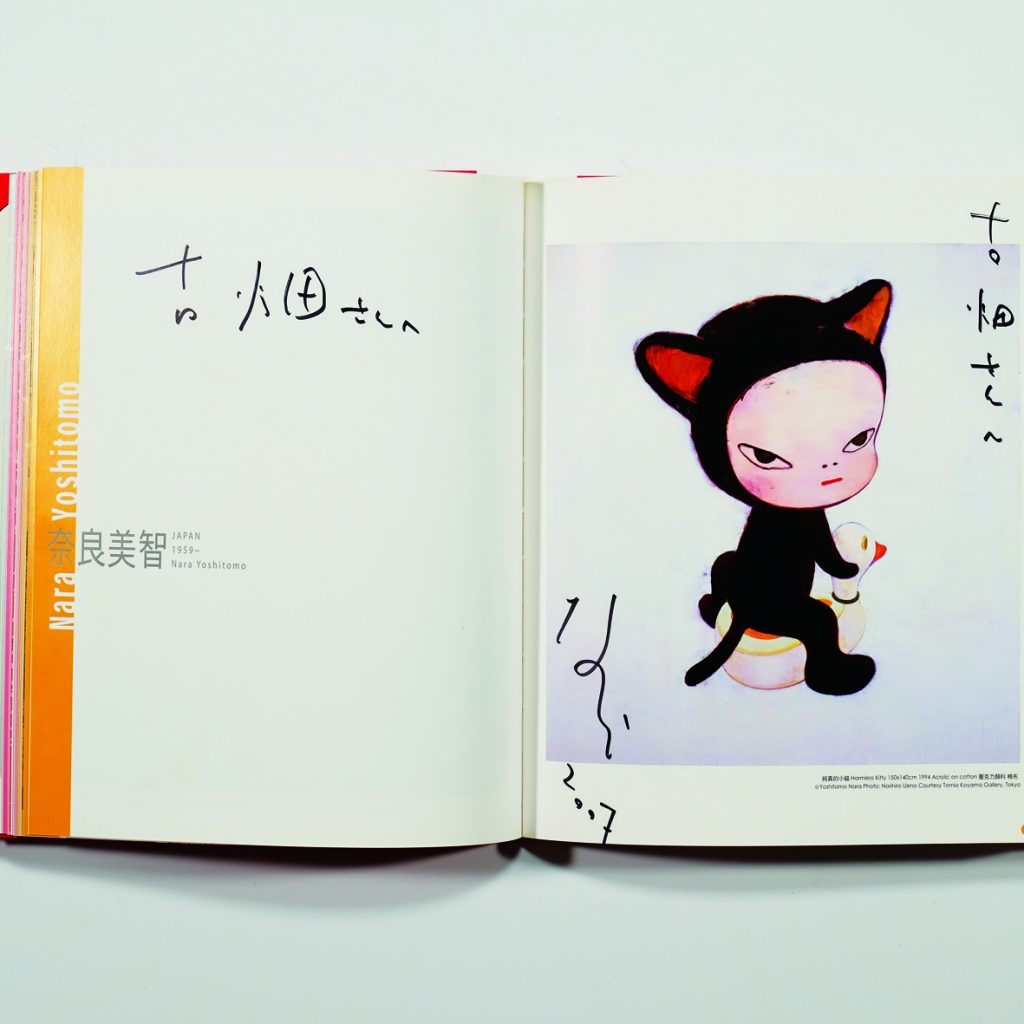 古畑さんへ
Nara Yoshitomo
奈良美智
JAPAN
1959~
Nara Yoshitomo
古畑さんへ
2007
純真的小貓 Harmless Kitty 150x140cm 1994 Acrylic on cotton 壓克力顏料 棉布
©Yoshitomo Nara Photo: Norihiro Ueno Courtesy Tomio Koyama Gallery, Tokyo